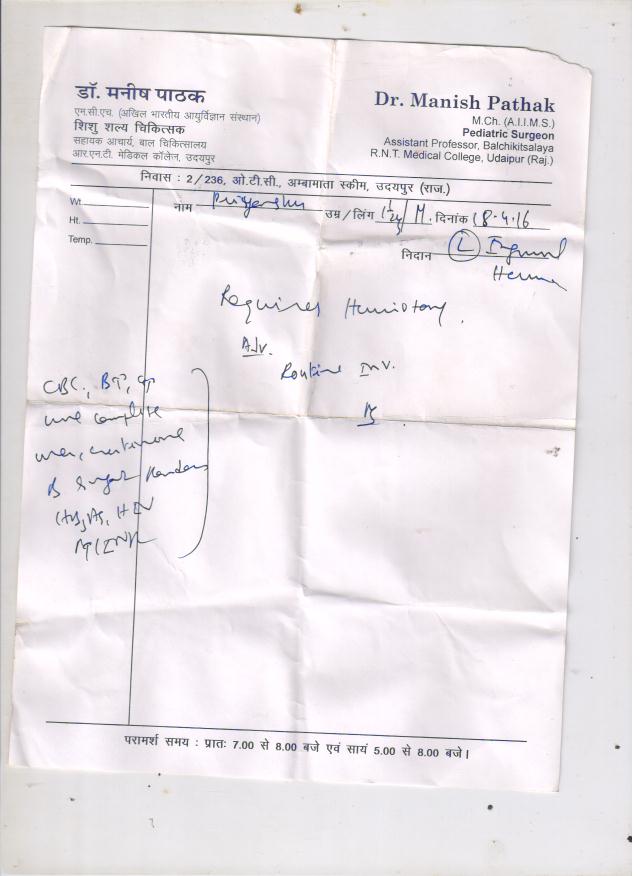 डॉ. मनीष पाठक
एम.सी.एच. (अखिल भारतीय आयुर्विज्ञान संस्थान)
शिशु शल्य चिकित्सक
सहायक आचार्य, बाल चिकित्सालय
आर.एन.टी. मेडिकल कॉलेज, उदयपुर
Dr. Manish Pathak
M.Ch. (A.I.I.M.S.)
Pediatric Surgeon
Assistant Professor, Balchikitsalaya
R.N.T. Medical College, Udaipur (Raj.)
निवास : 2/236, ओ.टी.सी., अम्बामाता स्कीम, उदयपुर (राज.)
Wt.
Ht.
Temp.
नाम Priyanshu उम्र / लिंग / M. दिनांक 18.4.16
निदान (L) Inguinal
Hernia
Requires Herniotomy.
Adv.
Routine Inv.
CBC, BT, CT
urine complete
urea, creatinine
B Sugar Random
HIV
परामर्श समय : प्रातः 7.00 से 8.00 बजे एवं सायं 5.00 से 8.00 बजे।